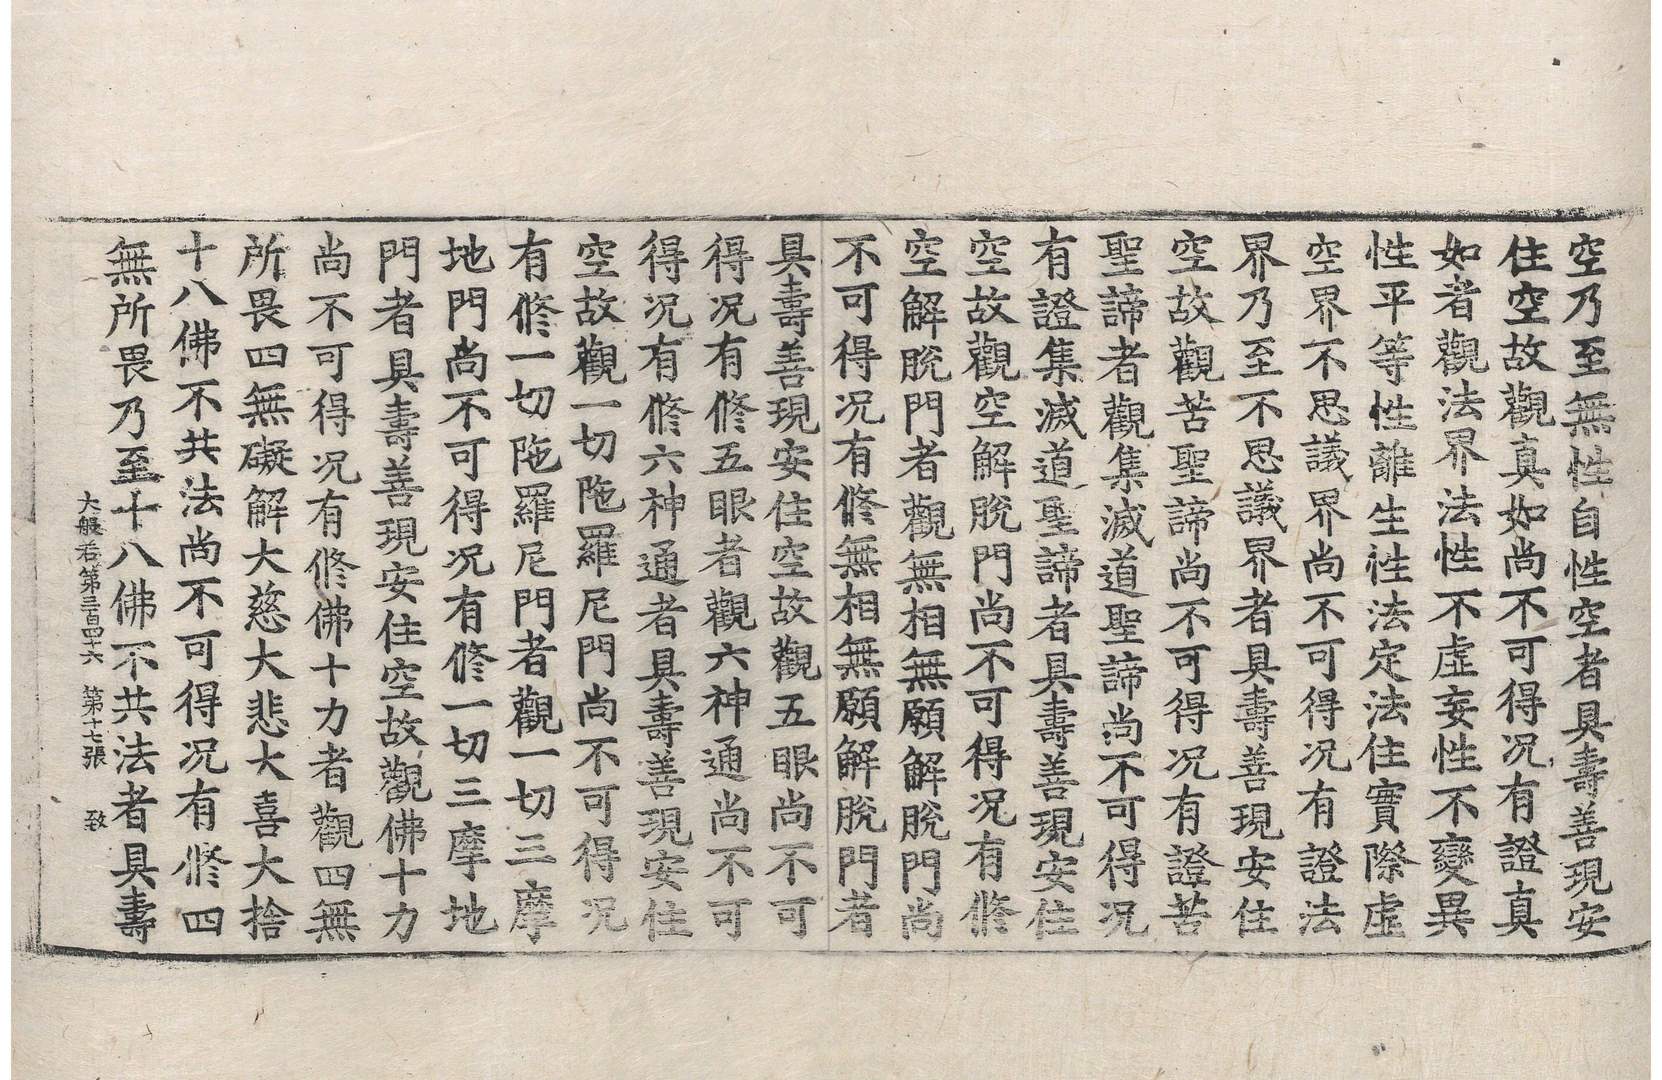 空乃至無性自性空者具壽善現安
住空故觀真如尚不可得况有證真
如者觀法界法性不虛妄性不變異
性平等性離生性法定法住實際虛
空界不思議界尚不可得况有證法
界乃至不思議界者具壽善現安住
空故觀苦聖諦尚不可得况有證苦
聖諦者觀集滅道聖諦尚不可得况
有證集滅道聖諦者具壽善現安住
空故觀空解脫門尚不可得况有修
空解脫門者觀無相無願解脫門尚
不可得况有修無相無願解脫門者
具壽善現安住空故觀五眼尚不可
得况有修五眼者觀六神通尚不可
得况有修六神通者具壽善現安住
空故觀一切陁羅尼門尚不可得况
有修一切陁羅尼門者觀一切三摩
地門尚不可得况有修一切三摩地
門者具壽善現安住空故觀佛十力
尚不可得况有修佛十力者觀四無
所畏四無礙解大慈大悲大喜大捨
十八佛不共法尚不可得况有修四
無所畏乃至十八佛不共法者具壽
大般若第三百四十六 第十七張 致